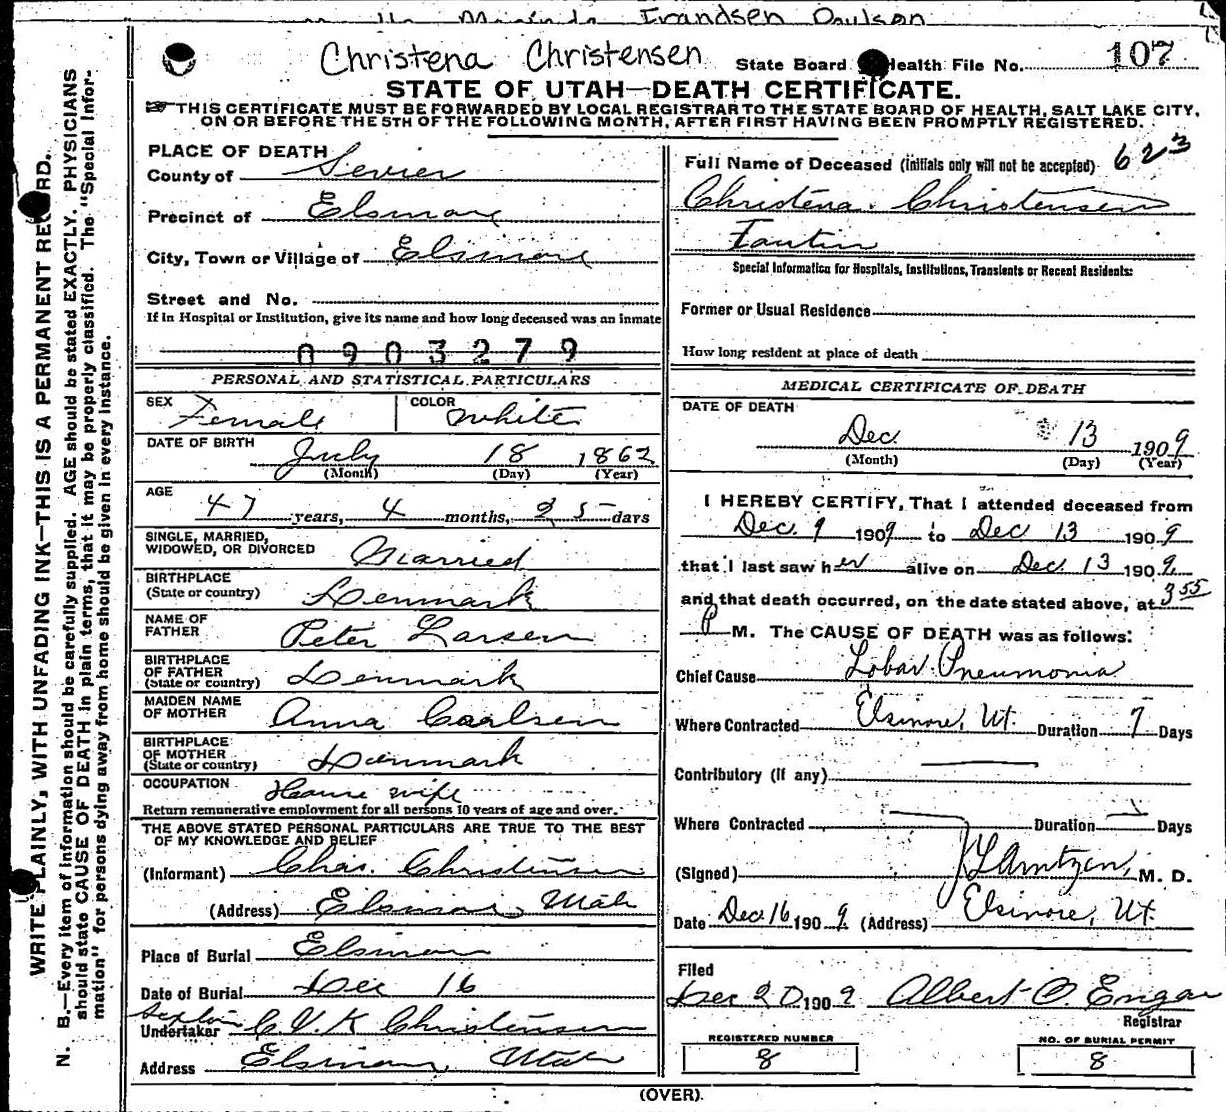 Frandsen Poulson
Christena Christensen
State Board Health File No. 107
STATE OF UTAH—DEATH CERTIFICATE.
THIS CERTIFICATE MUST BE FORWARDED BY LOCAL REGISTRAR TO THE STATE BOARD OF HEALTH, SALT LAKE CITY,
ON OR BEFORE THE 5TH OF THE FOLLOWING MONTH, AFTER FIRST HAVING BEEN PROMPTLY REGISTERED.
WRITE PLAINLY, WITH UNFADING INK—THIS IS A PERMANENT RECORD.
N. B.—Every item of information should be carefully supplied. AGE should be stated EXACTLY. PHYSICIANS
should state CAUSE OF DEATH in plain terms, that it may be properly classified. The "Special Infor-
mation" for persons dying away from home should be given in every instance.
PLACE OF DEATH
County of Sevier
Precinct of Elsinore
City, Town or Village of Elsinore
Street and No.
If in Hospital or Institution, give its name and how long deceased was an inmate
0903279
PERSONAL AND STATISTICAL PARTICULARS
SEX Female COLOR White
DATE OF BIRTH July 18 1862
(Month) (Day) (Year)
AGE
47 years, 4 months, 25 days
SINGLE, MARRIED,
WIDOWED, OR DIVORCED Married
BIRTHPLACE
(State or country) Denmark
NAME OF
FATHER Peter Larsen
BIRTHPLACE
OF FATHER
(State or country) Denmark
MAIDEN NAME
OF MOTHER Anna Carlsen
BIRTHPLACE
OF MOTHER
(State or country) Denmark
OCCUPATION House wife
Return remunerative employment for all persons 10 years of age and over.
THE ABOVE STATED PERSONAL PARTICULARS ARE TRUE TO THE BEST
OF MY KNOWLEDGE AND BELIEF
(Informant) Chas. Christensen
(Address) Elsinore, Utah
Place of Burial Elsinore
Date of Burial Dec 16
Sexton
Undertaker C. V. K Christensen
Address Elsinore, Utah
Full Name of Deceased (initials only will not be accepted) 623
Christena Christensen
Special Information for Hospitals, Institutions, Transients or Recent Residents:
Former or Usual Residence
How long resident at place of death
MEDICAL CERTIFICATE OF DEATH
DATE OF DEATH
Dec. 13 1909
(Month) (Day) (Year)
I HEREBY CERTIFY, That I attended deceased from
Dec. 9 1909 to Dec 13 1909
that I last saw her alive on Dec. 13 1909
and that death occurred, on the date stated above, at 3 55
P M. The CAUSE OF DEATH was as follows:
Chief Cause Lobar Pneumonia
Where Contracted Elsinore, Ut. Duration 7 Days
Contributory (if any)
Where Contracted Duration Days
(Signed) M. D.
Date Dec. 16 1909 (Address) Elsinore, Ut.
Filed
Dec 20 1909 Albert O. Engar
Registrar
REGISTERED NUMBER
8
NO. OF BURIAL PERMIT
8
(OVER).